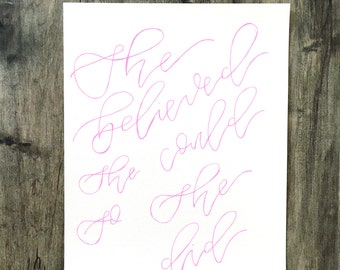 she
believed
she could
so she
did